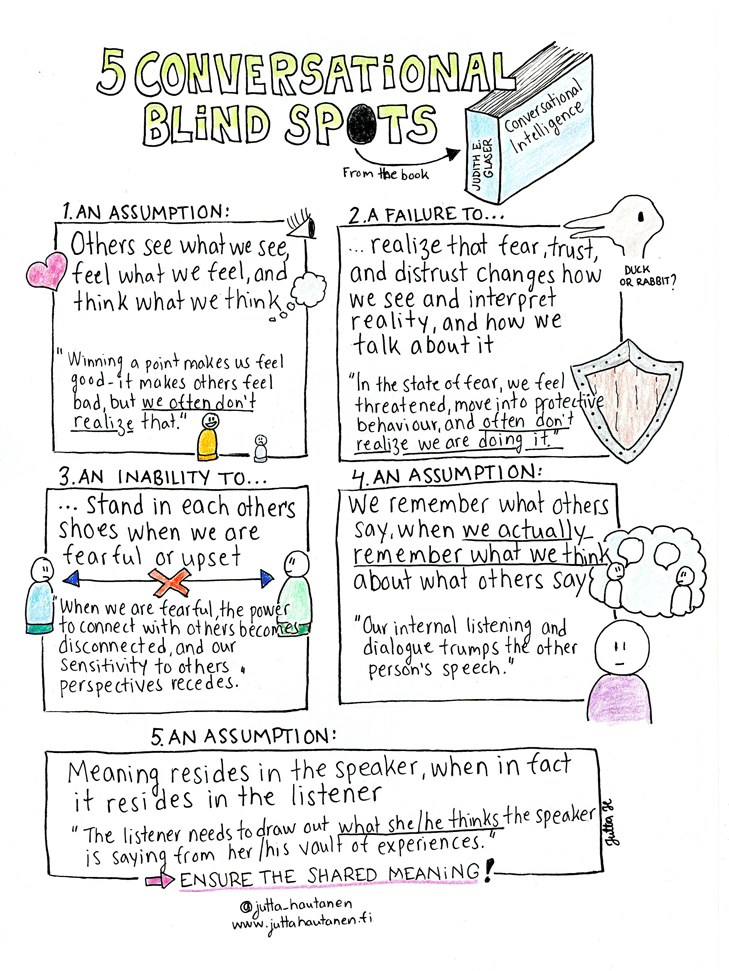 5 CONVERSATIONAL
BLIND SPOTS
From the book
JUDITH E.
GLASER
Conversational
Intelligence
1. AN ASSUMPTION:
Others see what we see,
feel what we feel, and
think what we think
"Winning a point makes us feel
good - it makes others feel
bad, but we often don't
realize that."
2. A FAILURE TO...
... realize that fear, trust,
and distrust changes how
we see and interpret
reality, and how we
talk about it
DUCK
OR RABBIT?
"In the state of fear, we feel
threatened, move into protective
behaviour, and often don't
realize we are doing it."
3. AN INABILITY TO...
... Stand in each other's
shoes when we are
fearful or upset
"When we are fearful, the power
to connect with others becomes
disconnected, and our
sensitivity to others
perspectives recedes.
4. AN ASSUMPTION:
We remember what others
say, when we actually
remember what we think
about what others say
"Our internal listening and
dialogue trumps the other
person's speech."
5. AN ASSUMPTION:
Meaning resides in the speaker, when in fact
it resides in the listener
"The listener needs to draw out what she/he thinks the speaker
is saying from her/his vault of experiences."
Jutta H
ENSURE THE SHARED MEANING!
@jutta_hautanen
www.juttahautanen.fi